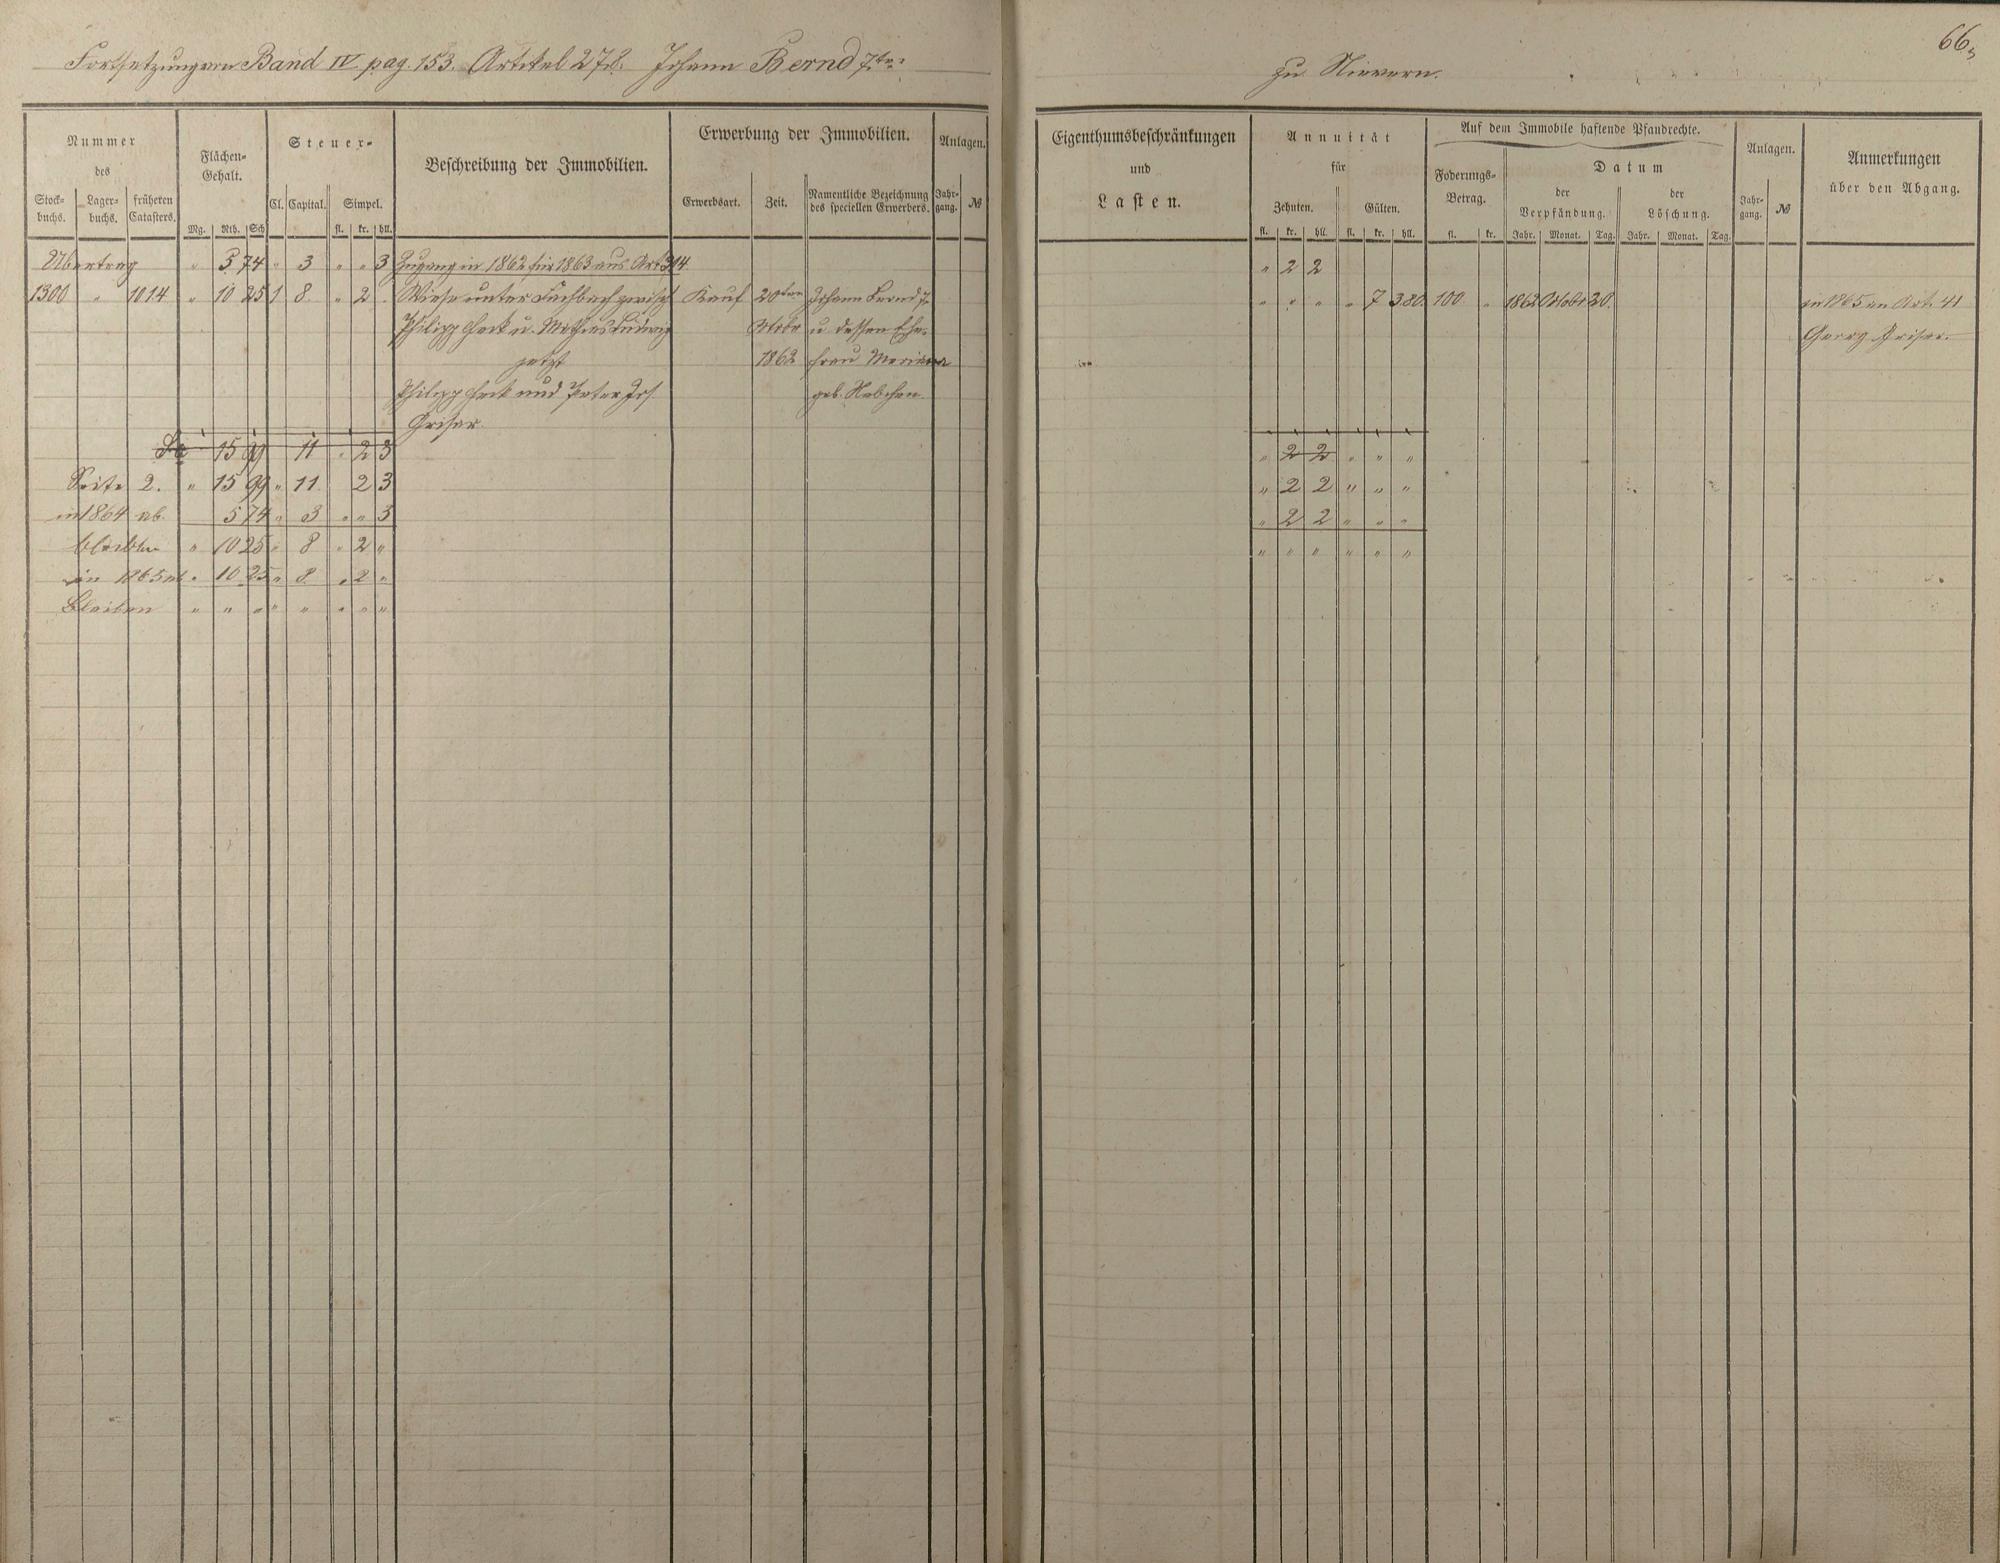 Fortsetzung von Band IV. pag. 153. Artikel 278. Johann Bernd 7ter
zu Nievern.
66
Nummer
des
Stock-
buchs.
Lager-
buchs.
früheren
Catasters.
Flächen-
Gehalt.
Mg. Rth. Sch
Steuer-
Cl. Capital. Simpel.
fl. kr. hll.
Beschreibung der Immobilien.
Erwerbung der Immobilien.
Erwerbsart. Zeit. Namentliche Bezeichnung
des speciellen Erwerbers.
Anlagen.
Jahr-
gang. №
Eigenthumsbeschränkungen
und
Lasten.
Annuität
für
Zehnten. Gülten.
fl. kr. hll. fl. kr. hll.
Auf dem Immobile haftende Pfandrechte.
Foderungs-
Betrag.
fl. kr.
Datum
der
Verpfändung.
der
Löschung.
Jahr. Monat. Tag. Jahr. Monat. Tag.
Anlagen.
Jahr-
gang. №
Anmerkungen
über den Abgang.
Übertrag " 5 74 " 3 " " 3 Zugang in 1862 für 1863 aus Art 314. " 2 2
1300 " 1014 " 10 25 1 8. " 2 . Wiese unter Fachbach zwisch Kauf 20ten Johann Bernd 7. " " " " 7 380. 100 " 1862 Octobr 20. in 1865 an Art. 41
Philipp Heck u. Mathias Ludwig Octbr u. dessen Ehe- Georg Griser.
jetzt 1862 frau Mariana
Philipp Heck und Peter Jos. geb.
Griser.
Sa 15 99 11 " 2 3 " 2 2 " " "
Seite 2. " 15 99 " 11 2 3 " 2 2 " " "
in 1864 ab. 5 74 " 3 " " 3 " 2 2 " " "
bleiben " 10 25 " 8 " 2 " " " " " " "
in 1865 ab " 10 25 " 8. " 2 "
bleiben " " " " " " " "